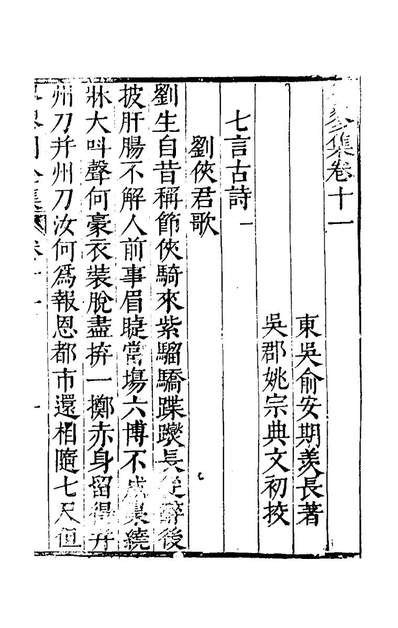 集卷十一
東吳俞安期羨長著
吳郡姚宗典文初挍
七言古詩一
劉俠君歌
劉生自昔稱節俠騎來紫騮驕蹀躞長醉後
披肝腸不解人前事眉睫當塲六博不成梟繞
牀大呌聲何豪衣裝脫盡拚一擲赤身留得并
州刀并州刀汝何爲報恩都市還相隨七尺但
集卷十一